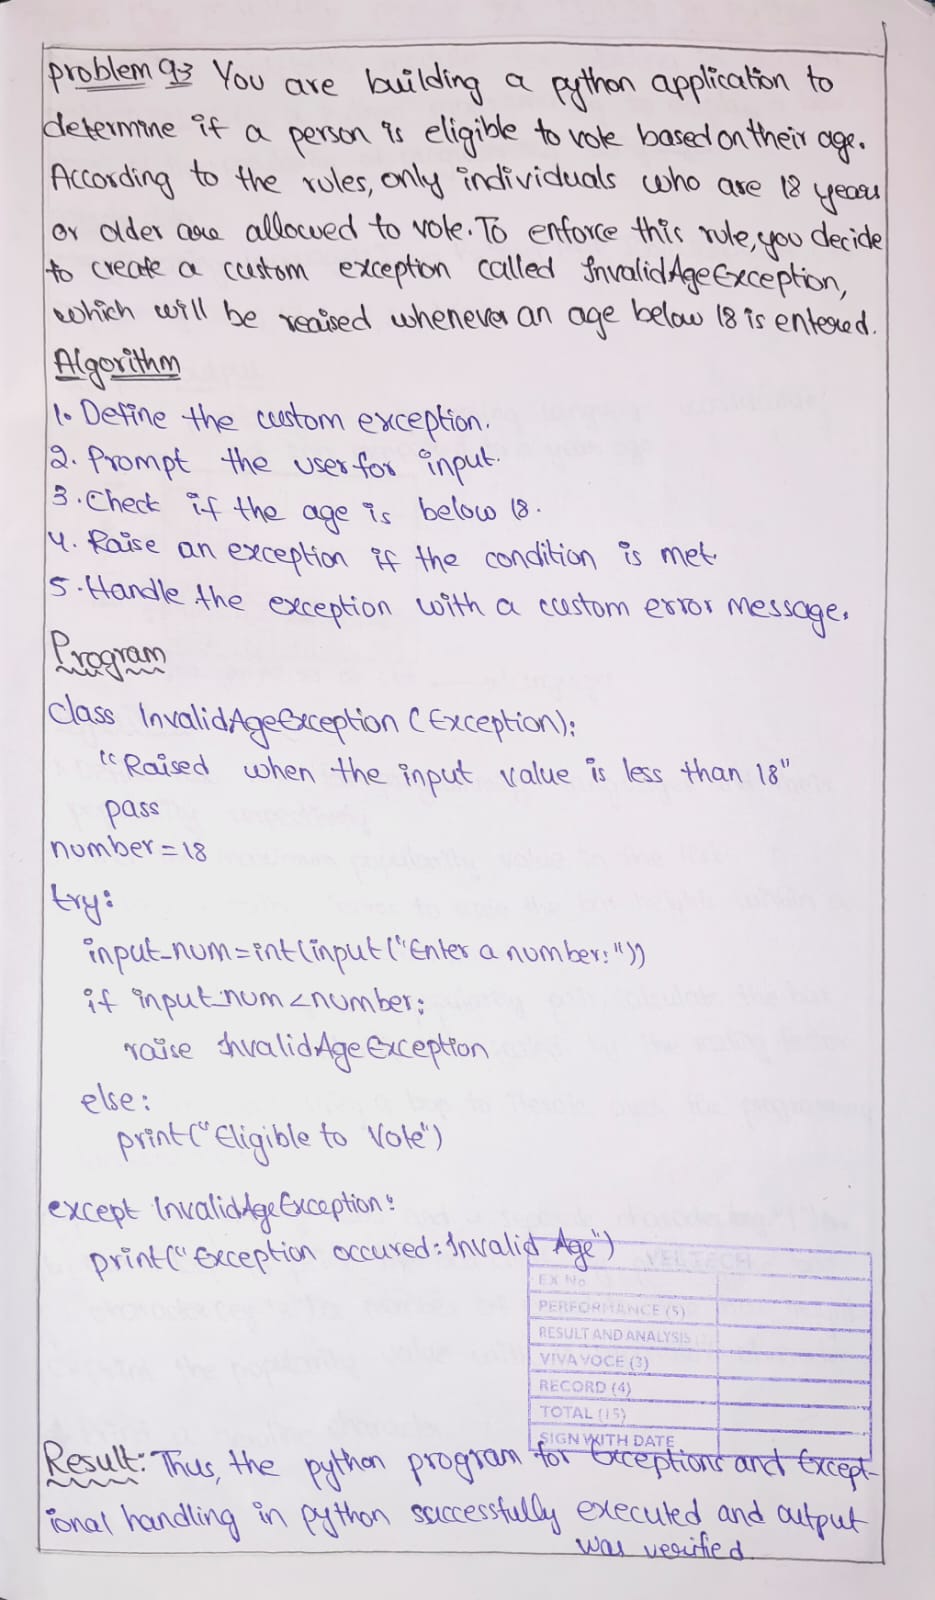 problem 9.3 You are building a python application to
determine if a person is eligible to vote based on their age.
According to the rules, only individuals who are 18 years
or older are allowed to vote. To enforce this rule, you decide
to create a custom exception called InvalidAgeException,
which will be reaised whenever an age below 18 is entered.
Algorithm
1. Define the custom exception.
2. Prompt the user for input.
3. Check if the age is below 18.
4. Raise an exception if the condition is met.
5. Handle the exception with a custom error message.
Program
class InvalidAgeException (Exception):
"Raised when the input value is less than 18"
pass
number = 18
try:
input_num = int(input("Enter a number:"))
if input_num < number:
raise InvalidAgeException
else:
print("Eligible to Vote")
except InvalidAgeException:
print("Exception occured: Invalid Age")
VEL TECH
EX No
PERFORMANCE (5)
RESULT AND ANALYSIS
VIVA VOCE (3)
RECORD (4)
TOTAL (15)
SIGN WITH DATE
Result: Thus, the python program for Exceptions and Except-
ional handling in python successfully executed and output
was verified.